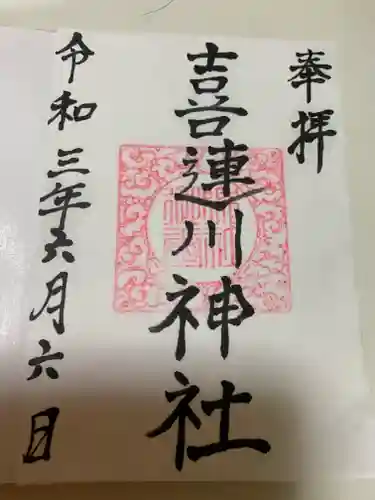 奉拝
喜連川神社
令和三年六月六日